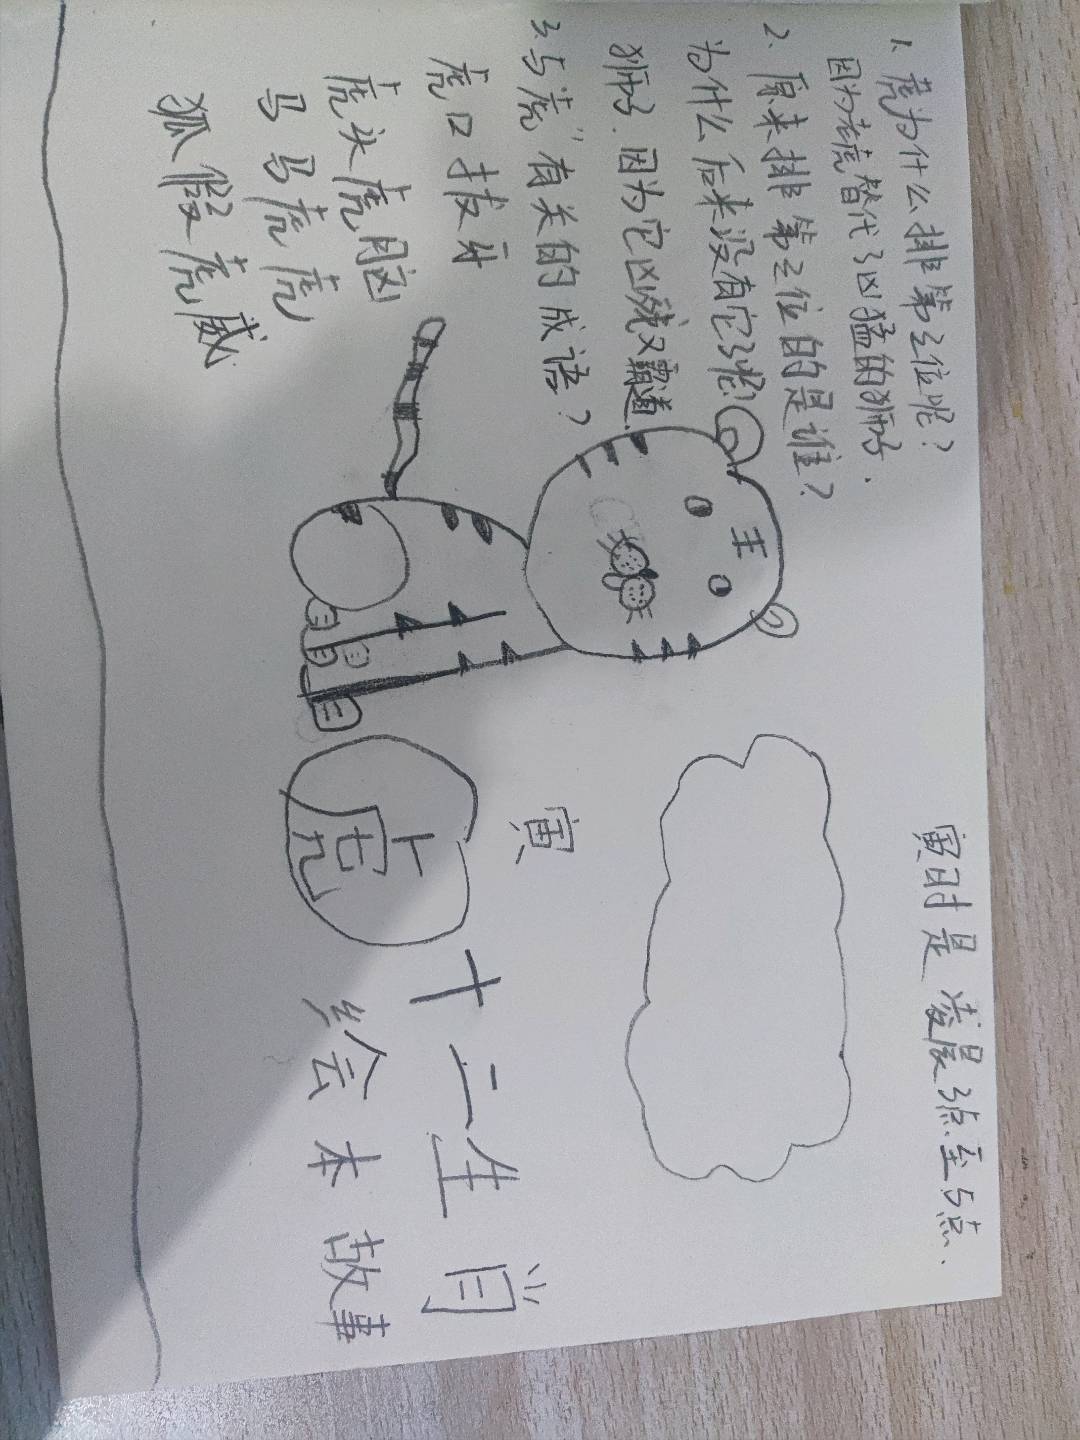 1、虎为什么排第三位呢？
因为老虎替代了凶猛的狮子.
2、原来排第三位的是谁？
为什么后来没有它了呢？
狮子.因为它凶残又霸道.
3.与"虎"有关的成语？
虎口拔牙
虎头虎脑
马马虎虎
狐假虎威
王
寅时是凌晨3点至5点.
寅
虎
十二生肖
绘本故事